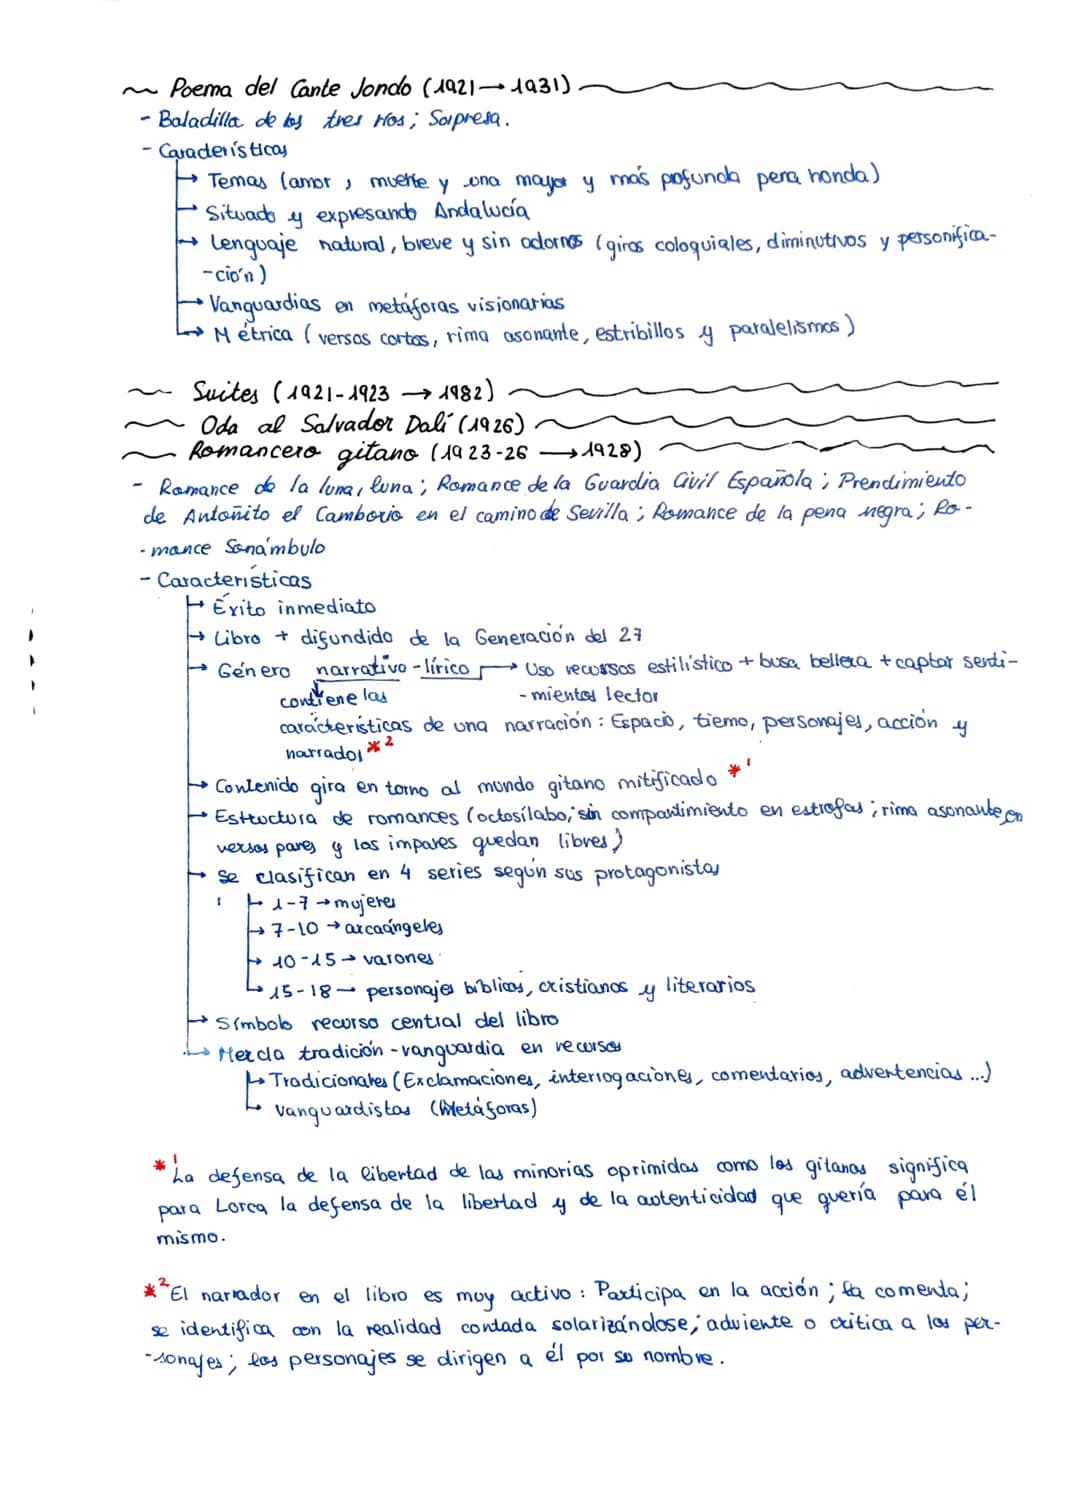 Poema del Cante Jondo (1921→1931)
- Baladilla de los tres ríos; Sorpresa.
- Características
→ Temas (amor, muerte y una mayor y más profunda pena honda)
→ Situado y expresando Andalucía
→ Lenguaje natural, breve y sin adornos (giros coloquiales, diminutivos y personifica-
-ción)
→ Vanguardias en metáforas visionarias
→ Métrica (versos cortos, rima asonante, estribillos y paralelismos)
Suites (1921-1923 → 1982)
Oda al Salvador Dalí (1926)
Romancero gitano (1923-26 → 1928)
- Romance de la luna, luna; Romance de la Guardia Civil Española; Prendimiento
de Antoñito el Camborio en el camino de Sevilla; Romance de la pena negra; Ro-
-mance Sonámbulo
- Características
→ Éxito inmediato
→ Libro + difundido de la Generación del 27
→ Género narrativo-lírico → Uso recursos estilístico + busa belleza + captar senti-
contiene las -mientos lector
características de una narración: Espacio, tiemo, personajes, acción y
narrador *2
→ Contenido gira en torno al mundo gitano mitificado *1
→ Estructura de romances (octosílabo; sin compartimiento en estrofas; rima asonante en
versos pares y los impares quedan libres)
→ Se clasifican en 4 series según sus protagonistas
→ 1-7 → mujeres
→ 7-10 → arcaángeles
→ 10-15 → varones
→ 15-18 → personajes bíblicos, cristianos y literarios
→ Símbolo recurso central del libro
→ Mezcla tradición-vanguardia en recursos
→ Tradicionales (Exclamaciones, interrogaciones, comentarios, advertencias ...)
→ Vanguardistas (Metáforas)
*1 La defensa de la libertad de las minorías oprimidas como los gitanos significa
para Lorca la defensa de la libertad y de la autenticidad que quería para él
mismo.
*2 El narrador en el libro es muy activo: Participa en la acción; la comenta;
se identifica con la realidad contada solarizándose; adviente o critica a los per-
-sonajes; los personajes se dirigen a él por su nombre.